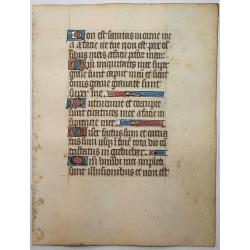 Non est sanitas in carne me
a a facie ire tue non est pax os
sibus meis a facie pctor meor
Qm iniquitates mee super
gresse sunt caput meu et sicut
onus graue grauate sunt
super me
Putruerunt et corrupte
sunt cicatrices mee a facie in
sipientie mee
Miser factus sum et curua
tus sum usq; in fine tota die co
tristatus ingrediebar
Qm lumbi mei impleti
sunt illusionibus et non est